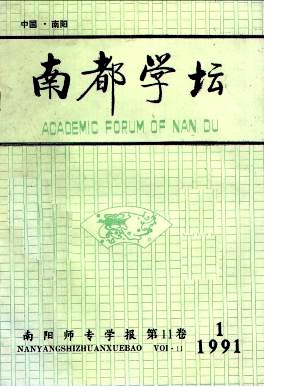 中国·南阳
南都学坛
ACADEMIC FORUM OF NAN DU
南阳师专学报 第11卷
NANYANGSHIZHUANXUEBAO VOl-11
1
1991